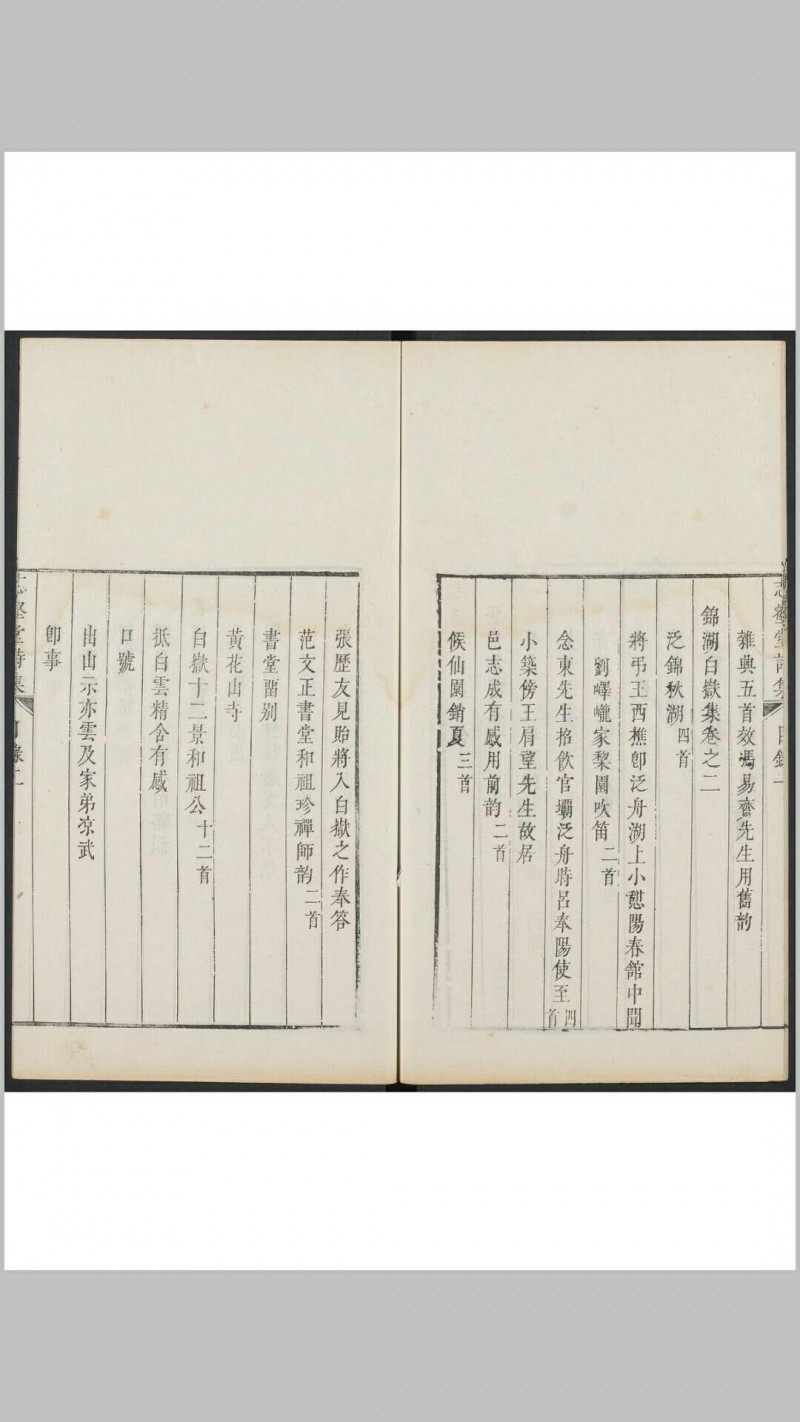 志壑堂詩集 目錄 一
雜興五首效馮易齋先生用舊韵
錦湖白嶽集卷之二
泛錦秋湖四首
將弔王西樵卽泛舟湖上小憇陽春舘中聞
劉嶧巄家棃園吹笛二首
念東先生招飮官壩泛舟時呂奉陽使至四首
小築傍王肩望先生故居
邑志成有感用前韵二首
候仙園銷夏三首
張歷友見貽將入白嶽之作奉答
范文正書堂和祖珍禪師韵二首
書堂畱别
黃花山寺
白嶽十二景和祖公十二首
抵白雲精舍有感
口號
出山示亦雲及家弟凉武
卽事
志壑堂詩集 目錄 二